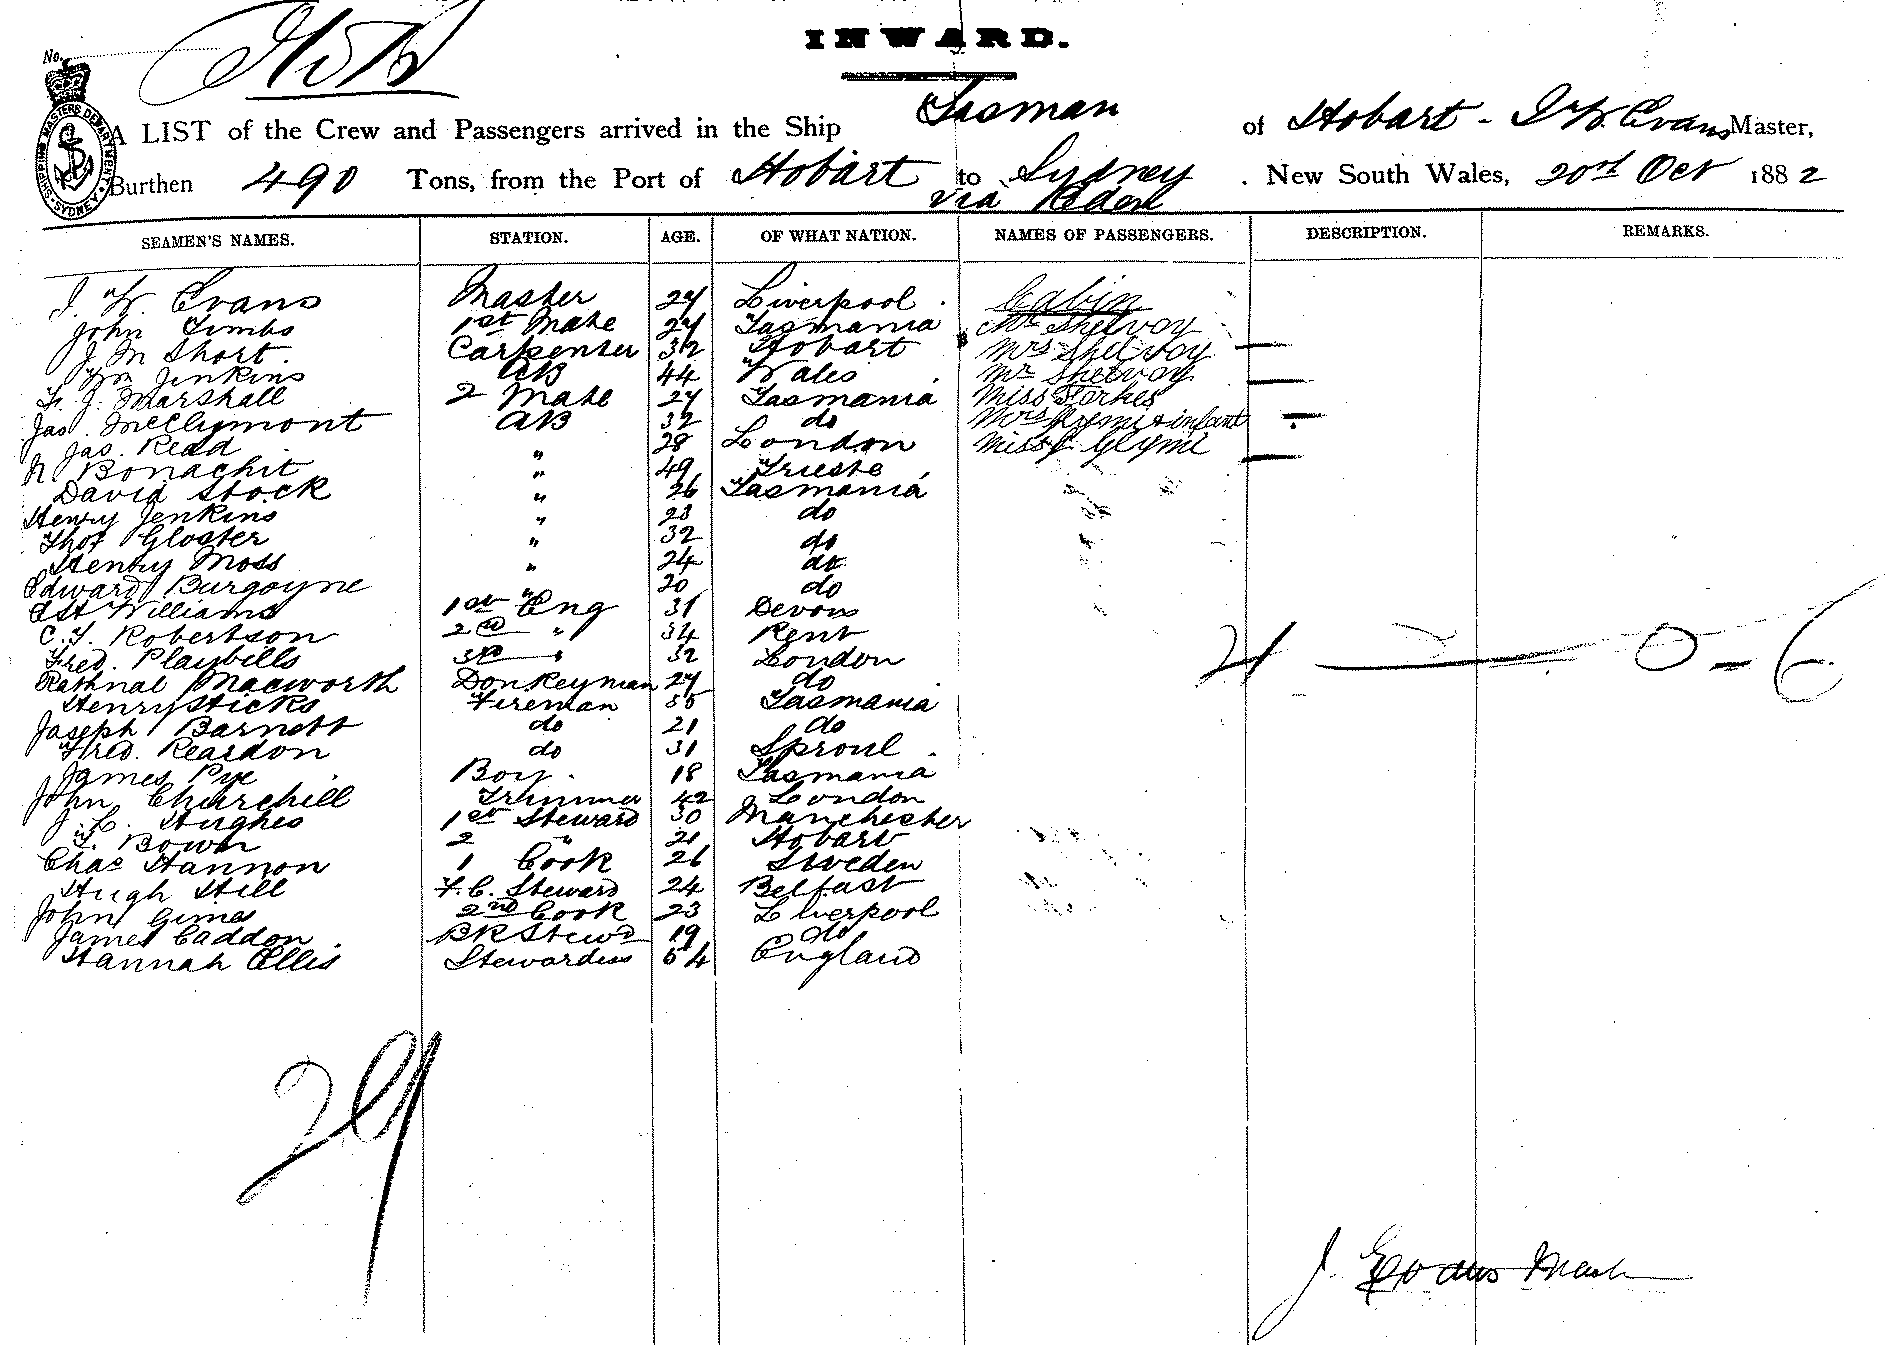 No.
INWARD.
A LIST of the Crew and Passengers arrived in the Ship Tasman of Hobart - J W. Evans Master,
Burthen 490 Tons, from the Port of Hobart to Sydney . New South Wales, 20th Oct 1882
via Eden
SHIPPING MASTERS DEPARTMENT SYDNEY
SEAMEN'S NAMES. STATION. AGE. OF WHAT NATION. NAMES OF PASSENGERS. DESCRIPTION. REMARKS.
J. W. Evans Master 27 Liverpool Cabin
John Timbs 1st Mate 27 Tasmania Mr Shelvoy
J. M Short. Carpenter 32 Hobart Mrs Shelvoy
Wm Jenkins AB 44 Wales Mr Shelvoy
F. J. Marshall 2 Mate 27 Tasmania Miss Forbes
Jas. McClymont AB 32 do Mrs & infant
Jas. Read " 28 London Miss
N Bonachit " 49 Trieste
David Stock " 26 Tasmania
Henry Jenkins " 23 do
Thos Gloster " 32 do
Henry Moss " 24 do
Edward Burgoyne " 20 do
Williams 1st Eng 31 Devon
C. F. Robertson 2nd " 34 Kent
Fred. Playbills 3rd " 32 London
Macworth Donkeyman 27 do
Henry Hicks Fireman Tasmania
Joseph Barnett do 21 do
Fred. Reardon do 31 Sproul
James Pye Boy. 18 Tasmania
John Churchill Trimmer 42 London
J. C. Hughes 1st Steward 30 Manchester
F. Bower 2 " 21 Hobart
Chas Hannon 1 Cook 26 Sweden
Hugh Hill F. C. Steward 24 Belfast
John Gimes 2nd Cook 23 Liverpool
James Caddon. BR Stewd 19 do
Hannah Ellis Stewardess 54 England
21 — 0 - 6
29
J. Evans Mast